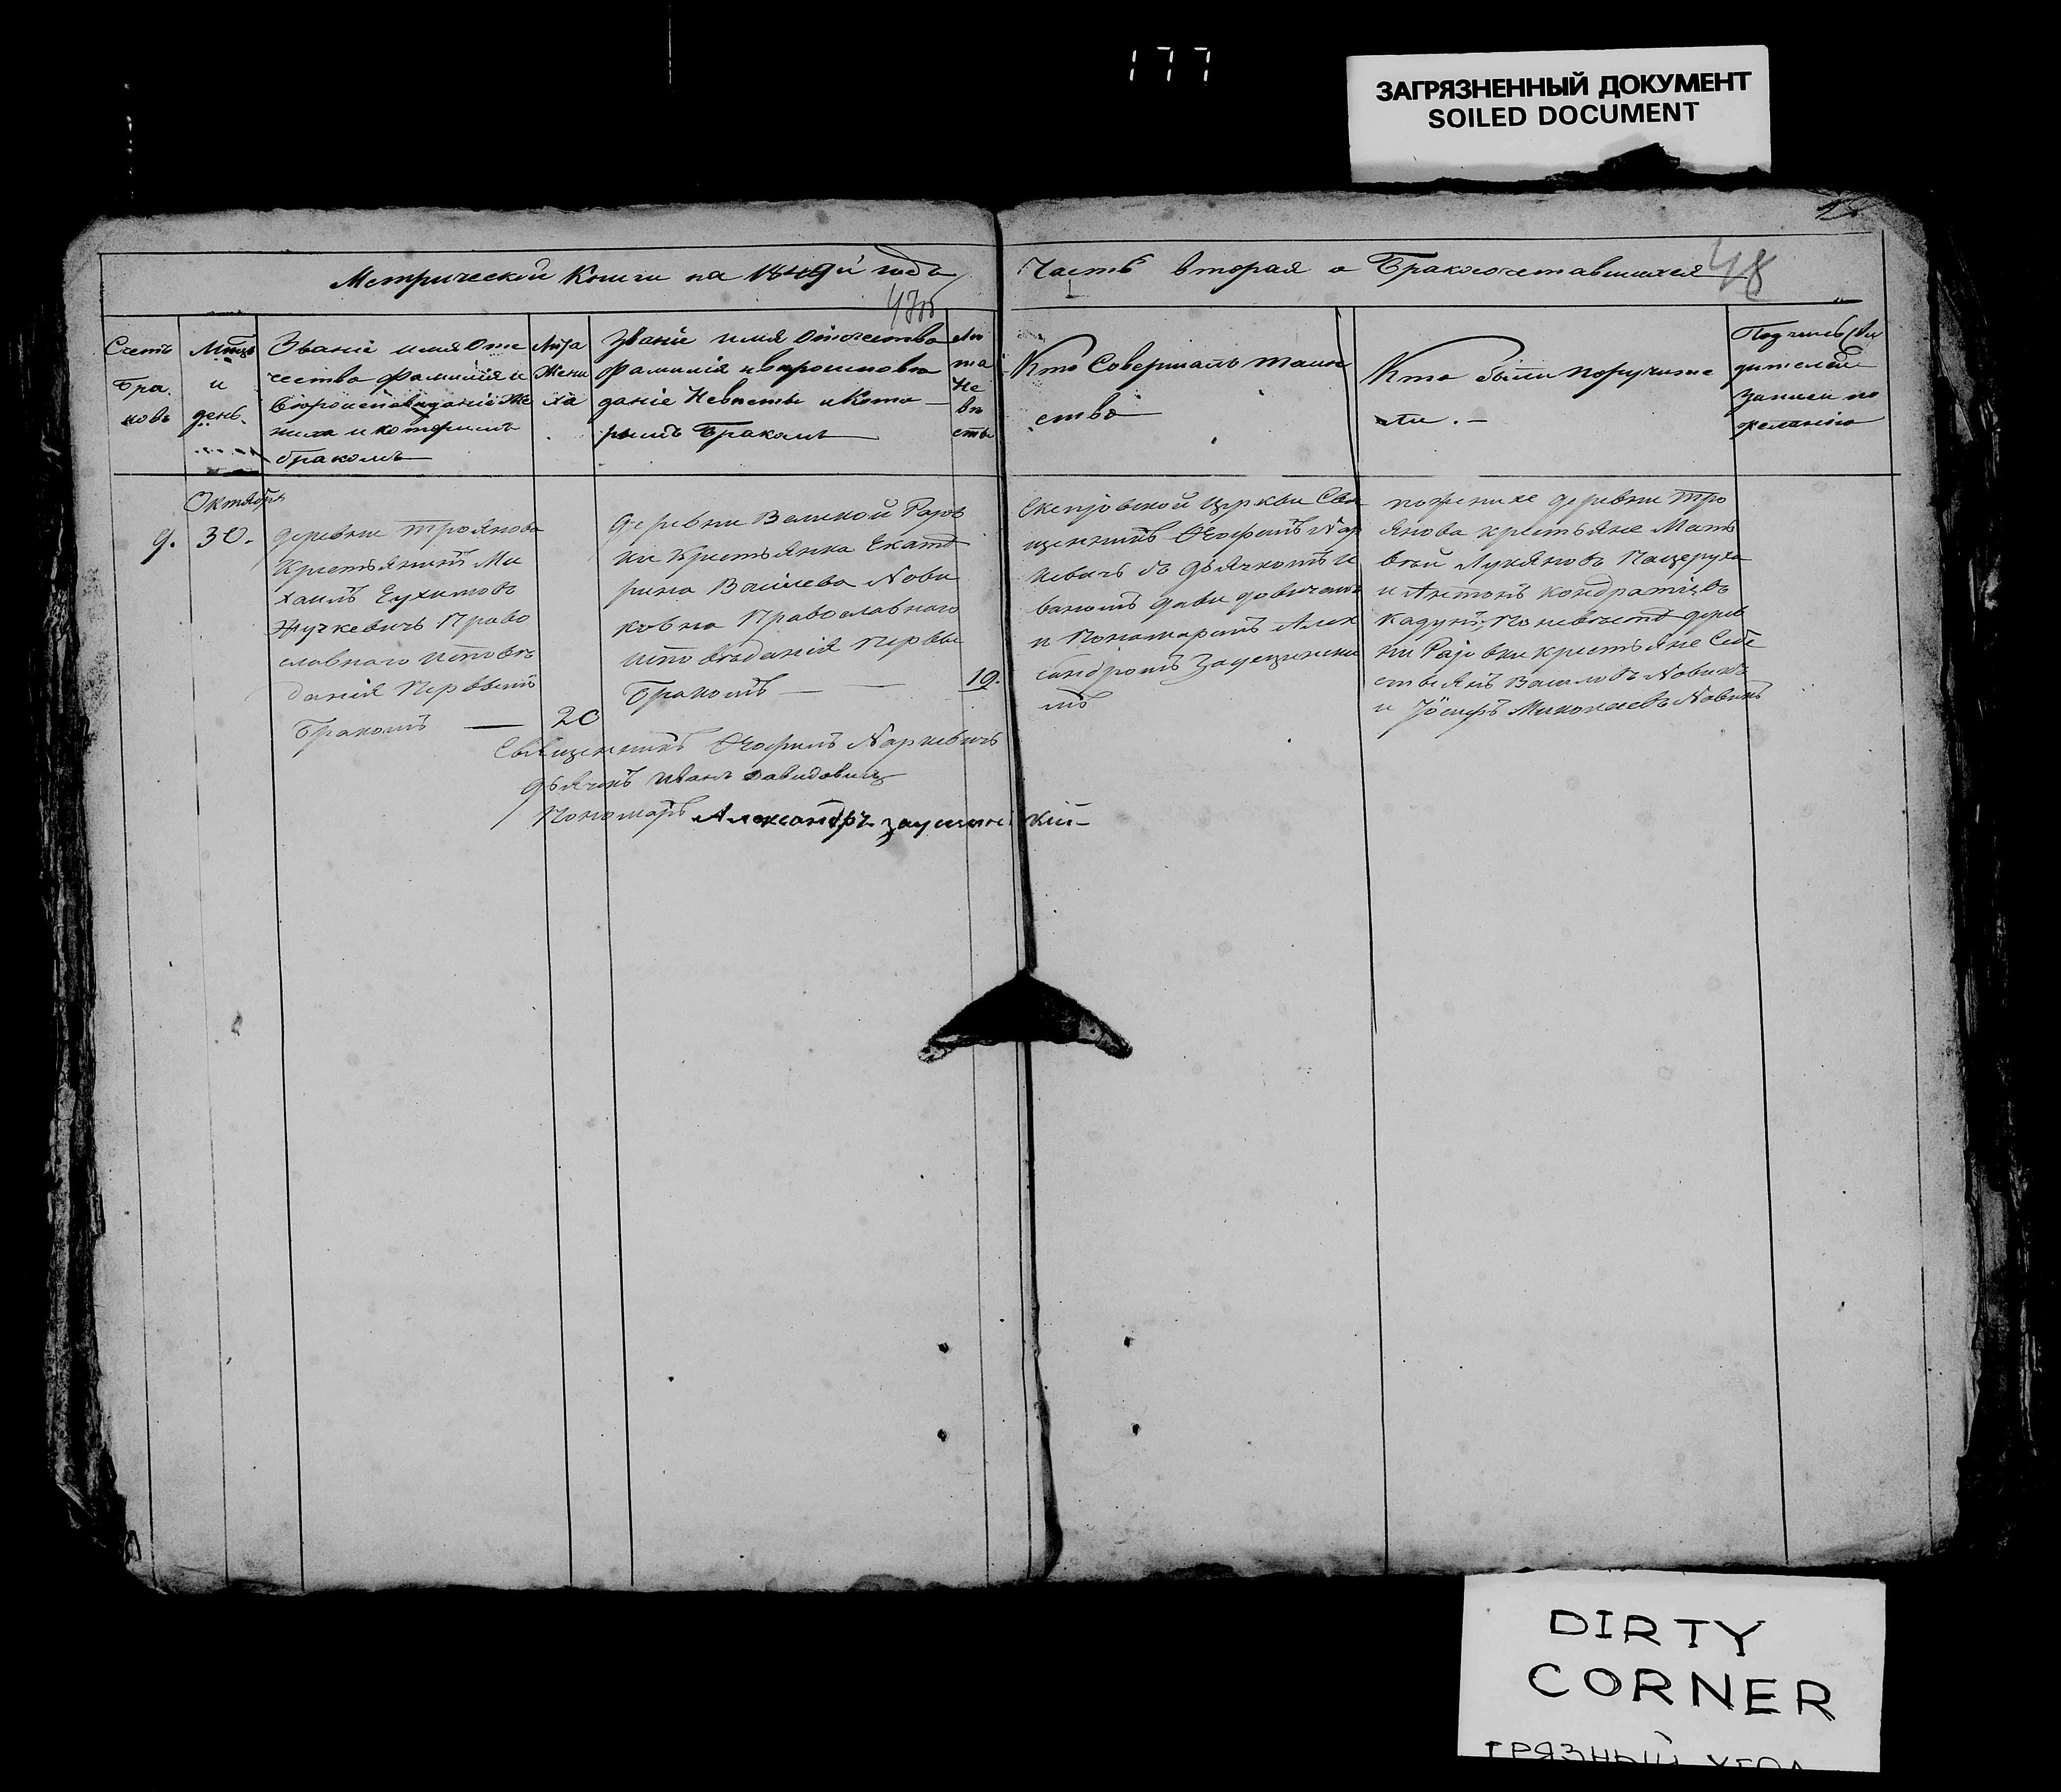 177
ЗАГРЯЗНЕННЫЙ ДОКУМЕНТ
SOILED DOCUMENT
48
Метрической Книги на 1849й годъ
Часть вторая о Бракосочетавшихся
Счетъ
Бра
ковъ
Мѣцъ
и
день
Званіе имя Оте
чество фамилія и
вѣроисповѣданіе Же
ниха и которымъ
бракомъ
Лѣта
Жени
ха
Званіе имя Отечество
фамилія и вѣроисповѣ
даніе Невѣсты и Кото
рымъ Бракомъ
Лѣ
та
Не
вѣ
сты
Кто Совершалъ Таин
ство
Кто были поручите
ли
Подпись Сви
дителей
записи по
желанію
Октября
9. 30.
деревни Троянова
Крестьянинъ Ми
хаилъ
Жучкевичъ Право
славнаго исповѣ
данія Первымъ
Бракомъ — 20
деревни Великой Раіов
ки Крестьянка Екате
рина Васильева Нови
ковна Православнаго
исповѣданія Первы
Бракомъ — — 19.
Церкви Свя
щенникъ
кевичъ съ дьячкомъ И
ваномъ Давидовичемъ
и Пономаремъ Алек
сандромъ
мъ
по женихе деревни Тро
янова крестьяне Мат
вѣй Лукяновъ Пацеруха
и Антонъ Кондратіевъ
Кадунъ, По невѣстѣ дерев
ни Раіовки крестьяне Себе
стьянъ Васильевъ Новикъ
и Іосифъ Миколаевъ Новикъ
Священникъ
дьячокъ Иванъ Давидовичъ
Пономарь Александръ
DIRTY
CORNER
ГРЯЗНЫЙ УГОЛ